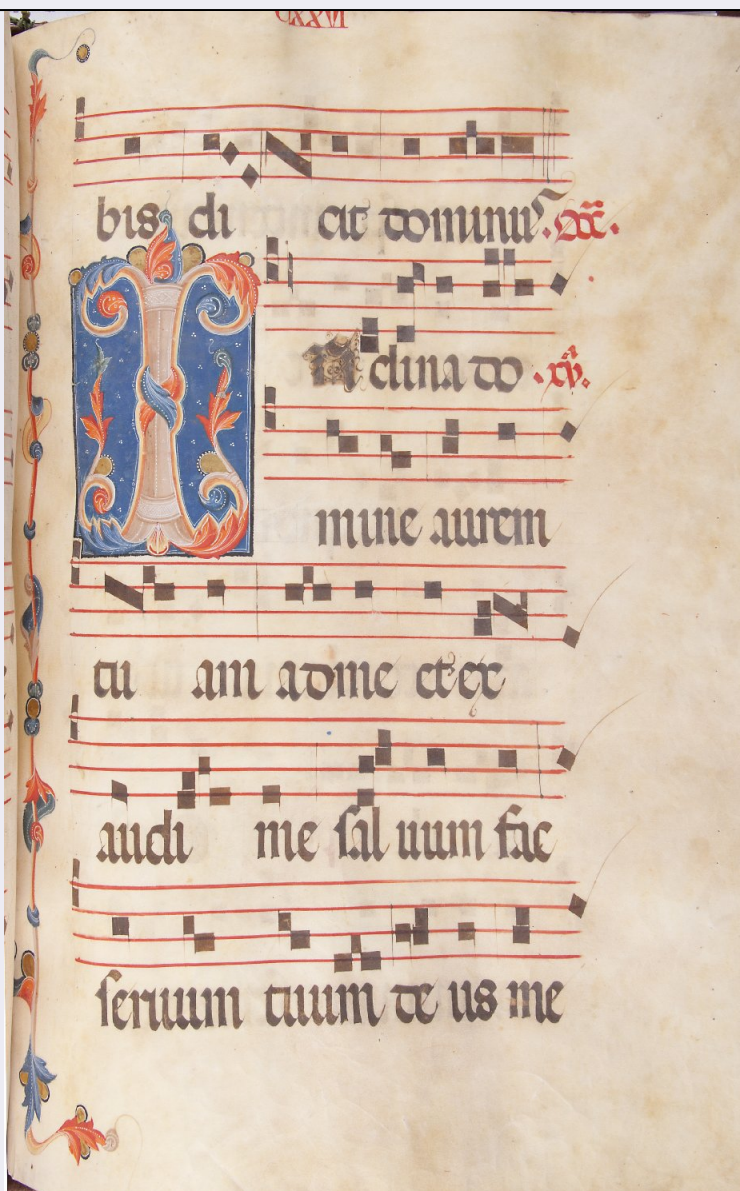 CXXVI
bis di cit dominus.
I n clina do .xv.
mine aurem
tu am ad me et ex
audi me sal uum fac
seruum tuum de us me